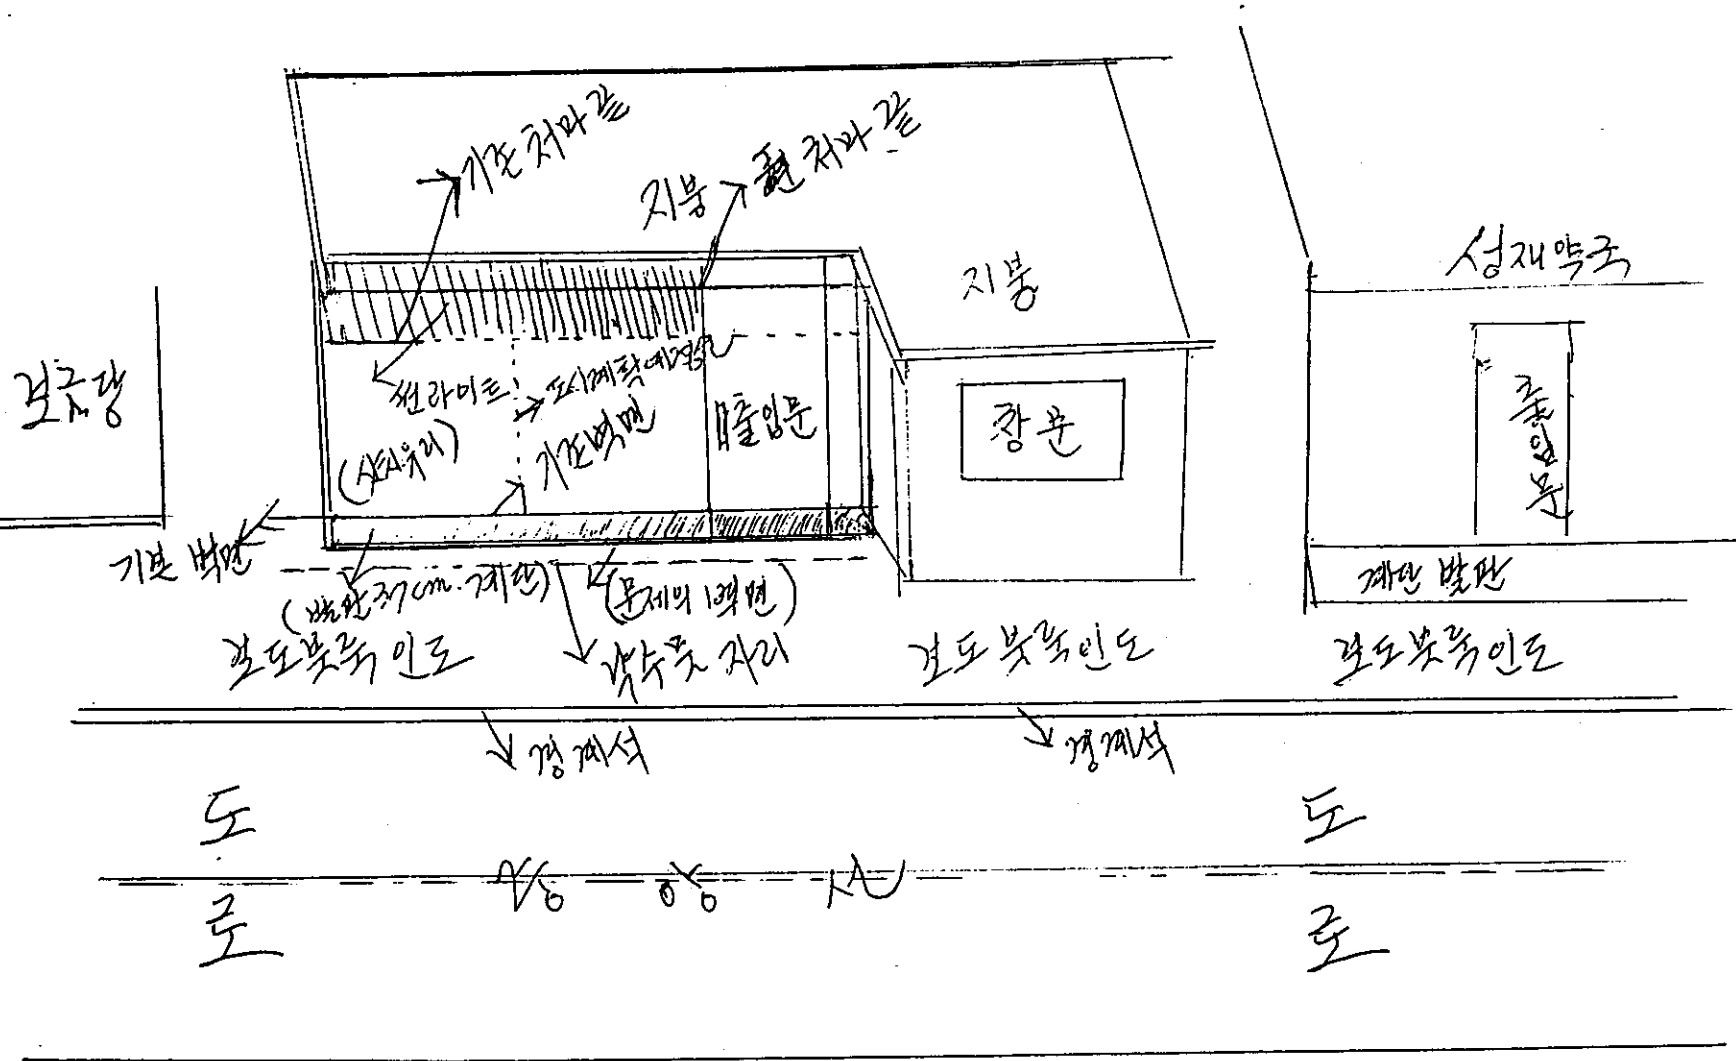 기존 처마 끝
지붕
처마 끝
지붕
성재약국
썬라이트
도시계획예정선
(샷시유리)
기존벽면
출입문
창문
출입문
기본 벽면
(발판 37cm. 계단)
(문제의 벽면)
계단 발판
보도붓룩 인도
낙수풋 자리
보도붓룩인도
보도붓룩인도
경계석
경계석
도
도
중 앙 선
로
로